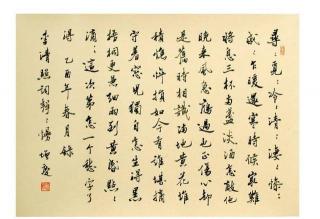 尋々覓々冷々清々凄々慘々
戚々乍暖還寒時候最難
將息三杯兩盞淡酒怎敵他
晚來風急雁過也正傷心卻
是舊時相識滿地黃花堆
積憔悴損如今有誰堪摘
守著窗兒獨自怎生得黑
梧桐更兼細雨到黃昏點々
滴々這次第怎一個愁字了
得 乙酉年春月錄
李清照詞聲々慢